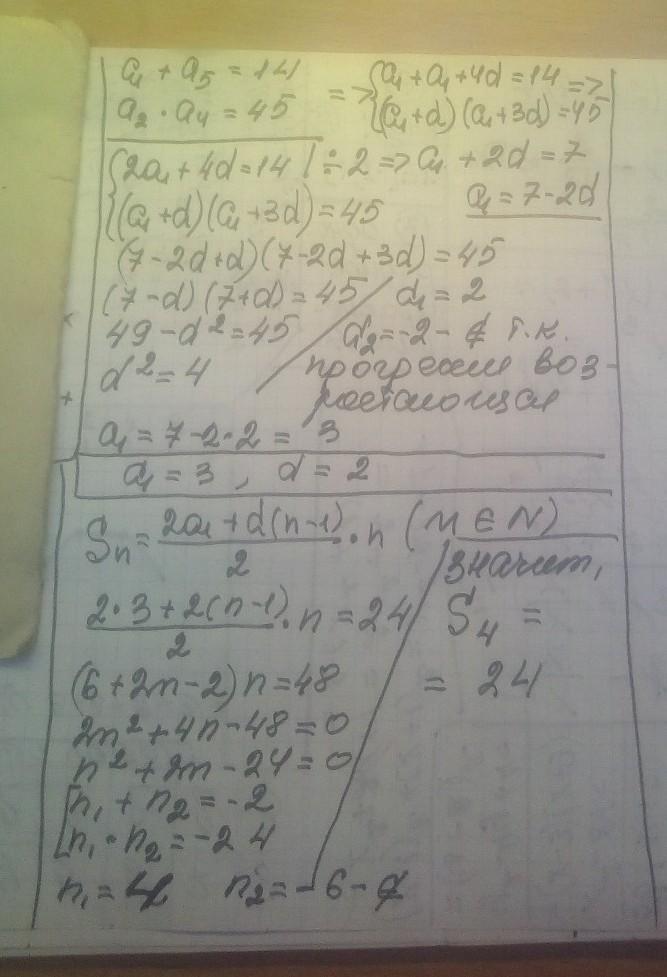 a₁ + a₅ = 14
a₂ · a₄ = 45
=> { a₁ + a₁ + 4d = 14 =>
(a₁+d)(a₁+3d) = 45
{ 2a₁ + 4d = 14 | ÷ 2 => a₁ + 2d = 7
{ (a₁+d)(a₁+3d) = 45
a₁ = 7-2d
(7-2d+d)(7-2d+3d) = 45
(7-d)(7+d) = 45
49 - d² = 45
d² = 4
d₁ = 2
d₂ = -2 - ∉ т.к.
прогрессия воз-
растающая
a₁ = 7-2·2 = 3
a₁ = 3, d = 2
Sₙ = (2a₁ + d(n-1))/2 · n (n ∈ N)
(2·3 + 2(n-1))/2 · n = 24
(6 + 2n - 2) n = 48
2n² + 4n - 48 = 0
n² + 2n - 24 = 0
[ n₁ + n₂ = -2
n₁ · n₂ = -24
n₁ = 4 n₂ = -6 - ∉
значит,
S₄ =
= 24